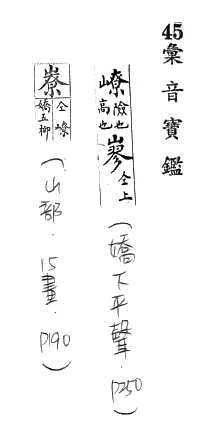 45彙音寶鑑
嶛險也高也嵺仝上(嬌下平聲.P250)
嶚仝嶛嬌五柳(山部.15畫.P190)